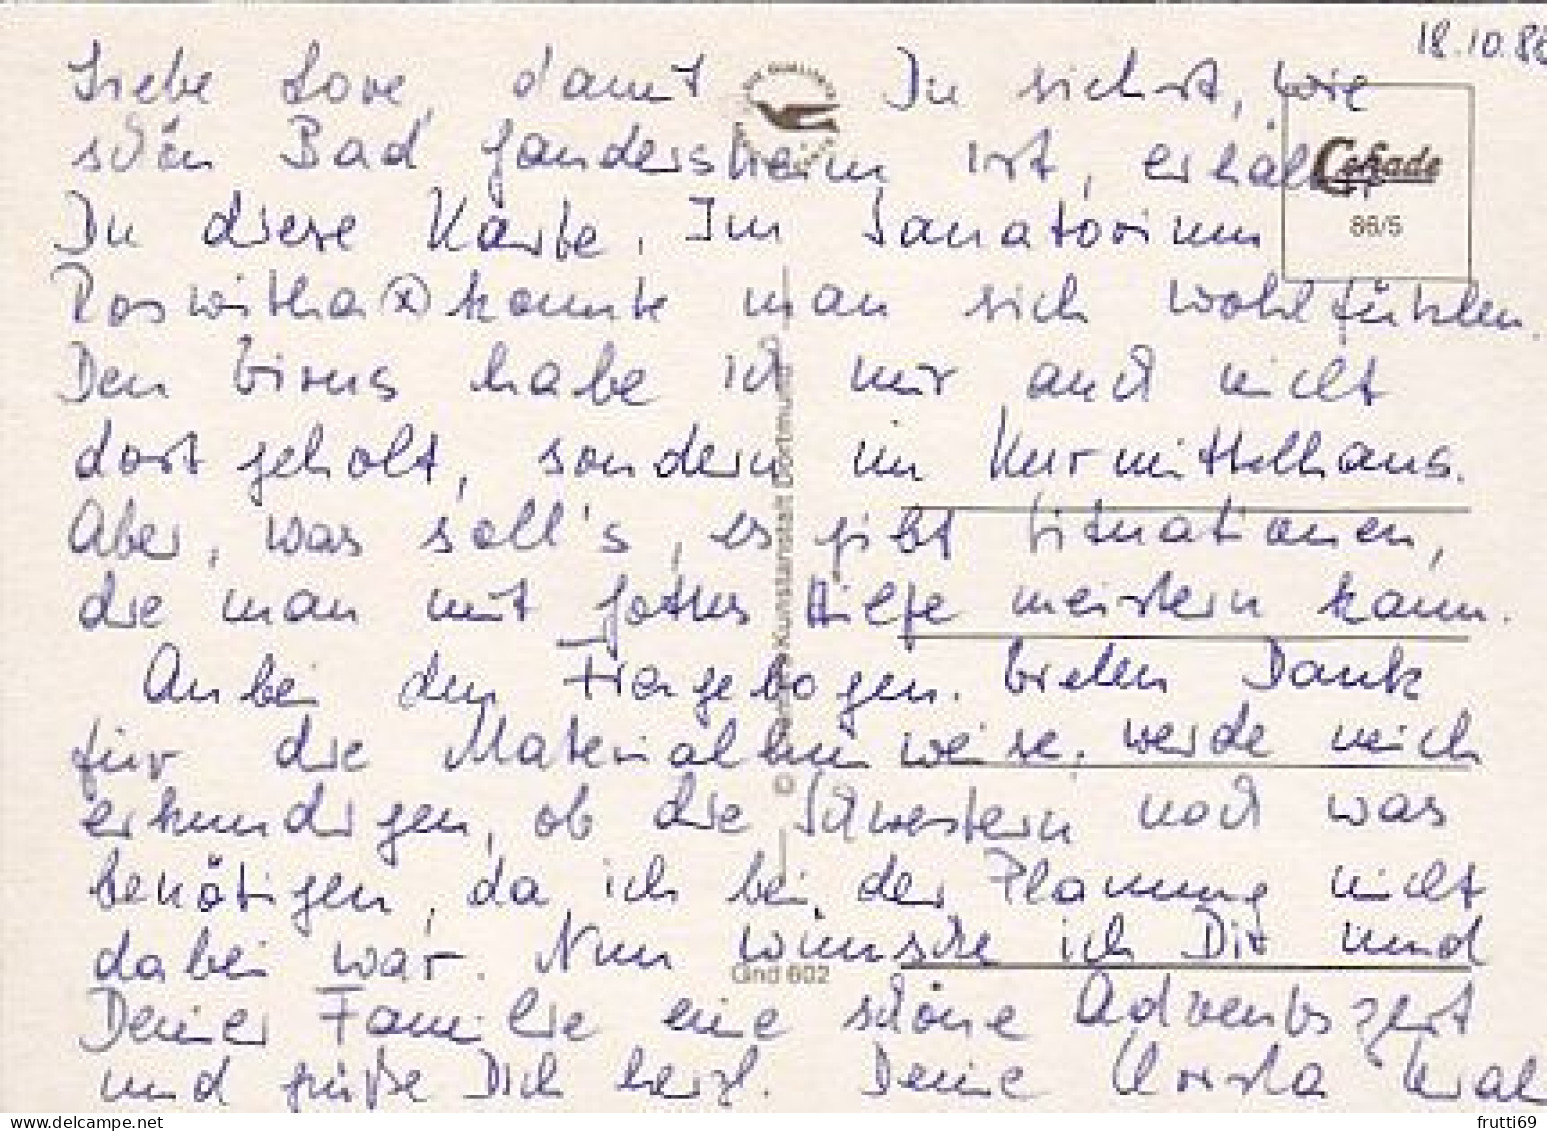 18.10.86
Liebe Lore, damit Du siehst, wie
schön Bad Gandersheim ist, erhältst
Du diese Karte. Im Sanatorium
Roswitha ⊗ konnte man sich wohlfühlen.
Den Virus habe ich mir auch nicht
dort geholt, sondern im Kurmittelhaus.
Aber, was soll's, es gibt Situationen,
die man mit Gottes Hilfe meistern kann.
Anbei den Fragebogen. Vielen Dank
für die Materialhinweise, werde mich
erkundigen, ob die Schwestern noch was
benötigen, da ich bei der Planung nicht
dabei war. Nun wünsche ich Dir und
Deiner Familie eine schöne Adventszeit
und grüße Dich herzl. Deine Christa
Cekade
86/5
Kunstanstalt Dortmund
©
Gnd 602
frutti69